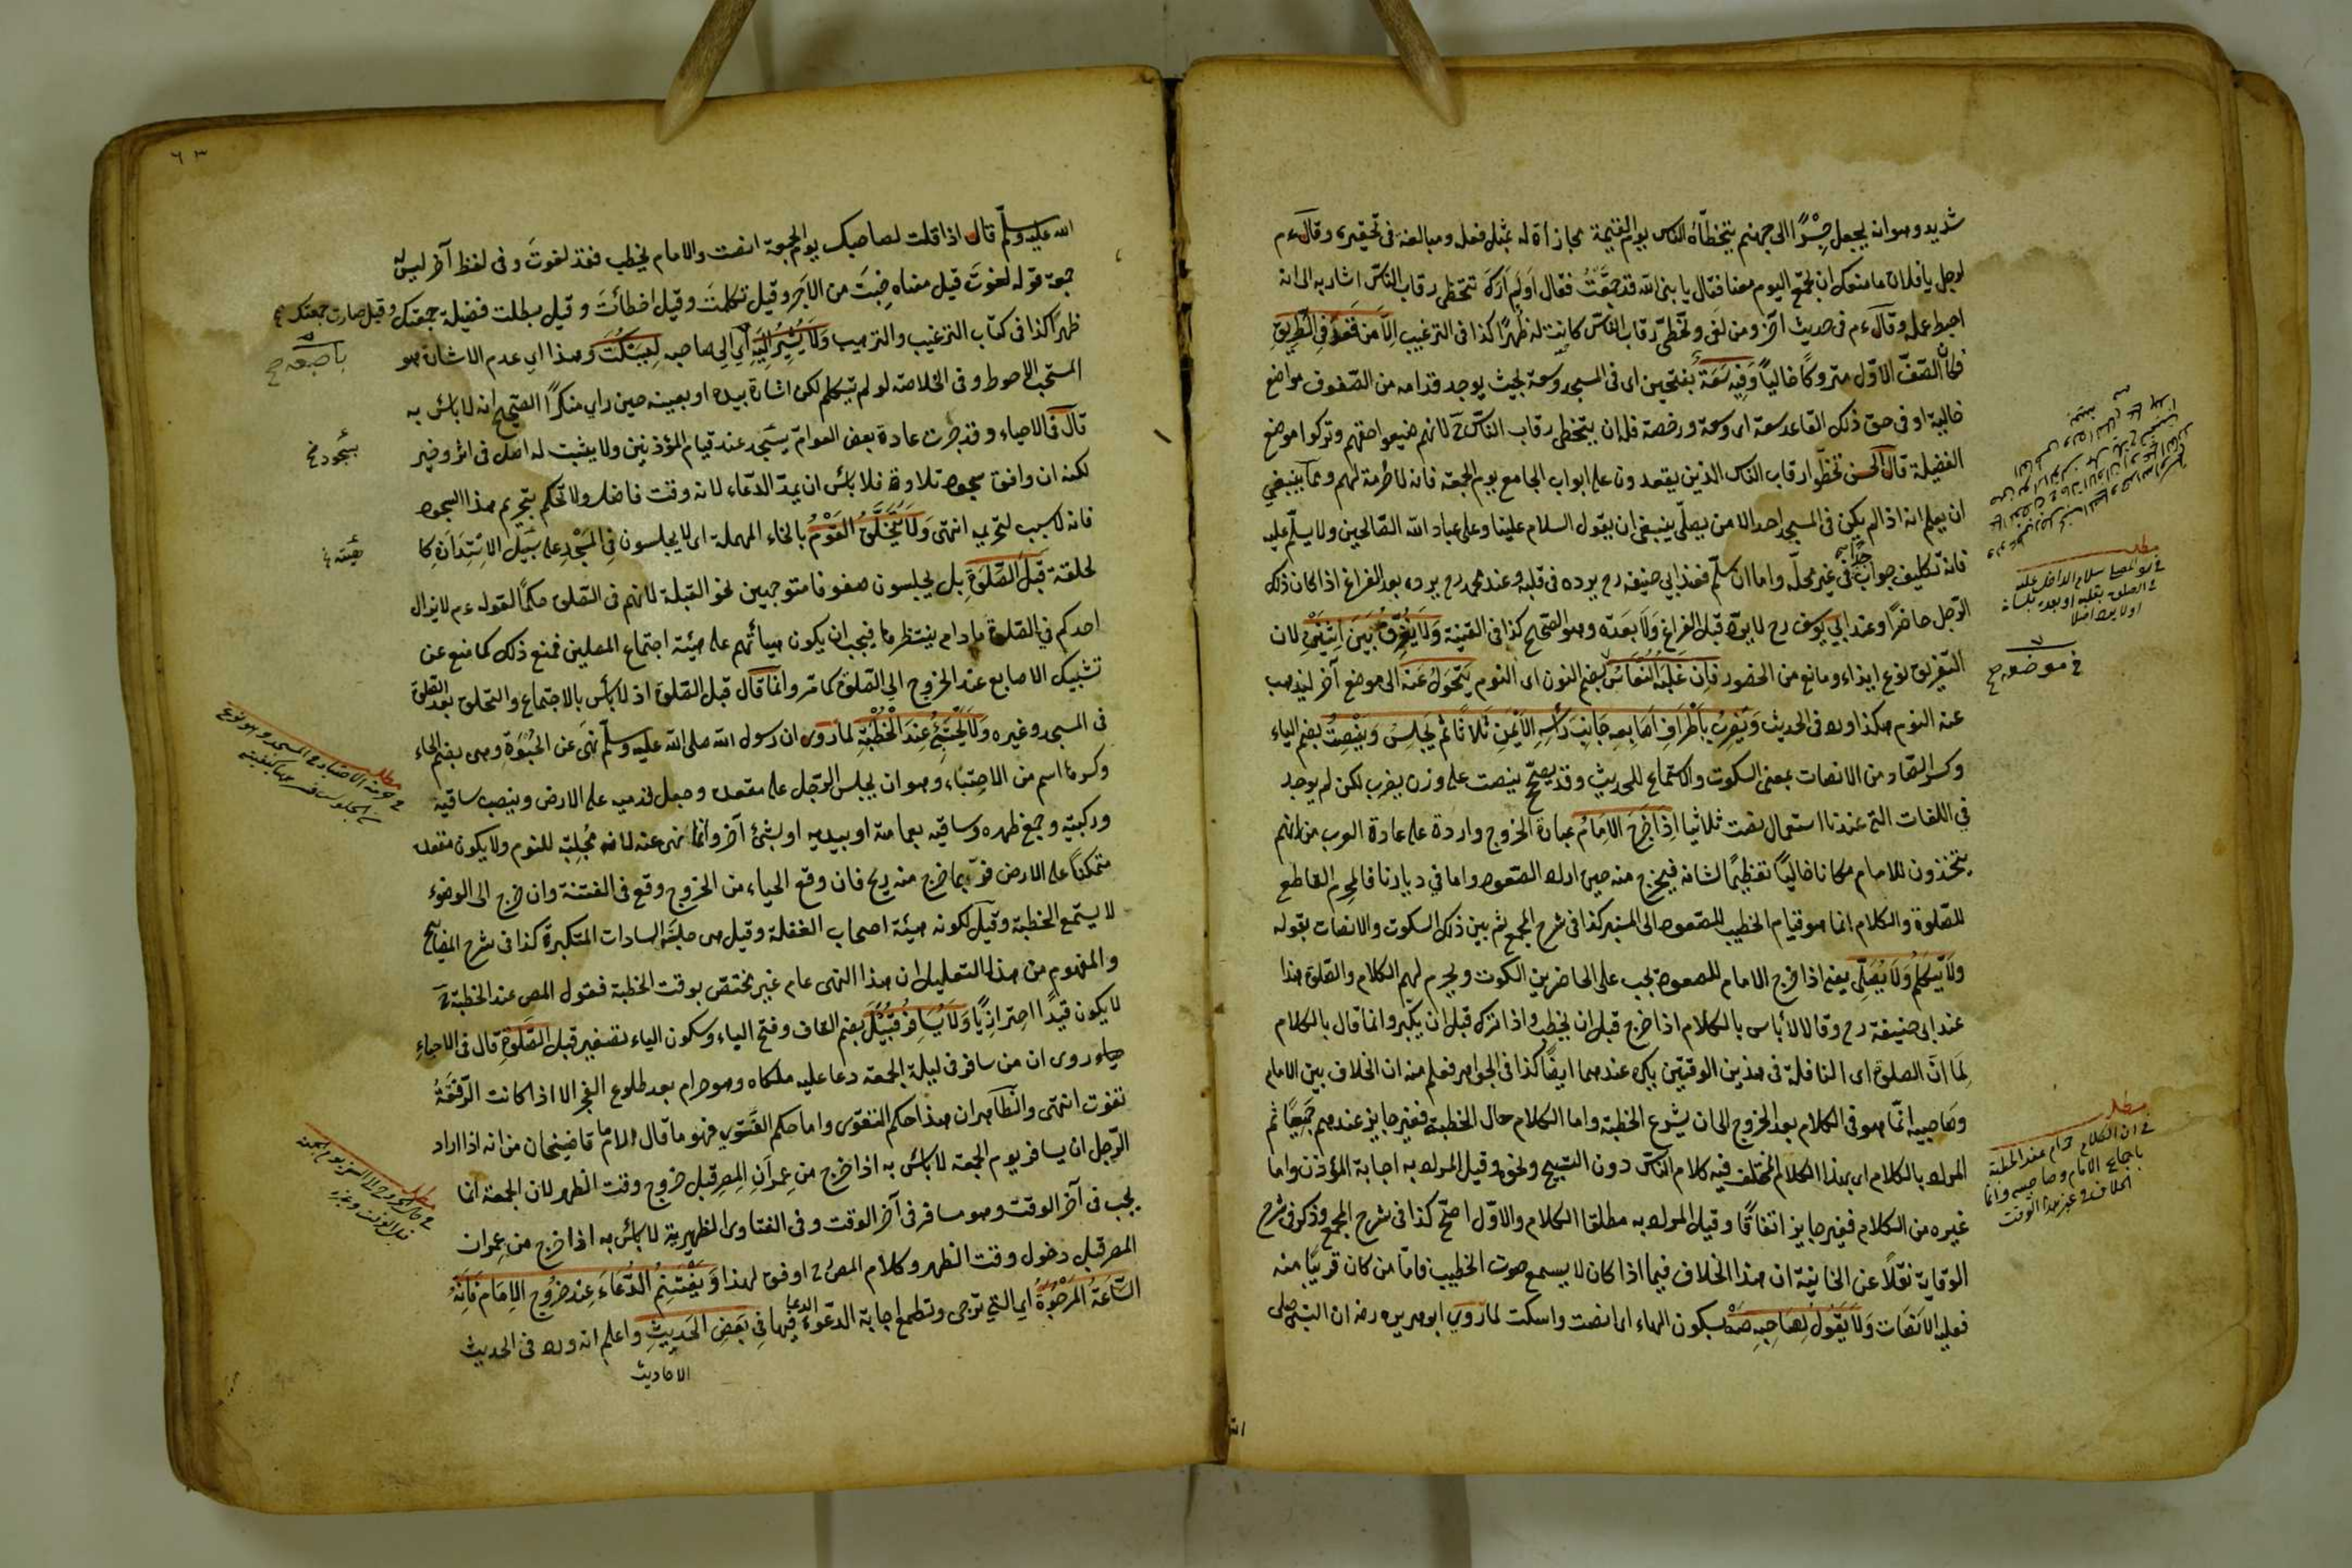 شديد وهو انه يجعل جسرًا الى جهنم يتخطاه الناس يوم القيمة مجازاة له بمثل فعله ومبالغة فى تحقيره وقال ءم
لرجل يا فلان ما منعك ان تجمع اليوم معنا فقال يا نبى الله قد جمعتُ فقال اَوَلَم اَرَكَ تتخطى رقاب الناس اشار به الى انه
احبط عمله وقال ءم فى حديث آخر ومن لغى وتخطى رقاب الناس كانت له ظهرًا كذا فى الترغيب اِلَّا مَن قَعَدَ فِي الطَّرِيقِ
فكأن الصفّ الاوّل متروكًا خاليًا وَفِيهِ سَعَةٌ بفتحين اى فى المسجد وسعة بحيث يوجد قدامه من الصفوف مواضع
خالية او فى حق ذلك القاعد سعة اى وسعة ورخصة فله ان يتخطى رقاب الناس لانهم ضيعوا حقهم وتركوا موضع
الفضيلة قال الحسن تخطّوا رقاب الناس الذين يقعدون على ابواب الجامع يوم الجمعة فانه لا حرمة لهم ومما ينبغي
ان يعلم انه اذا لم يكن فى المسجد احد الا من يصلّى ينبغى ان يقول السلام علينا وعلى عباد الله الصّالحين ولا يسلّم عليه
فانه تكليف جواب فى غير محلّه واما ان سلّم فعند ابي حنيفه رح يرده فى قلبه وعند محمد رح يرده بعد الفراغ اذا كان ذلك
الرّجل حاضرًا وعند ابي يوسف رح لا يردّه قبل الفراغ وَلَا بعده وهو الصّحيح كذا فى القنية وَلَا يُفَرِّقُ بَيْنَ اِثْنَيْنِ لان
التفريق نوع ايذاء ومانع من الحضور فَاِن غَلَبَهُ النُّعَاسُ بضم النون اى النوم يَتَحَوَّلُ عَنهُ الى موضع آخر ليذهب
عنه النوم هكذا ورد فى الحديث وَيَضرِبُ بِاَطْرَافِ اَصَابِعِهِ جَانِبَ رَأْسِهِ الاَيْمَنِ ثَلَاثًا ثُمَّ يَجْلِسُ وَيَنْصِتُ بضم الياء
وكسر الصّاد من الانصات بمعنى السكوت والاستماع للحديث وقد يصحّح ينصت على وزن يضرب لكن لم يوجد
في اللغات التى عندنا استعمال نصت ثلاثيا اِذَا خَرَجَ الاِمَامُ عبارة الخروج واردة على عادة العرب من انهم
يتخذون للامام مكانا خاليًا تعظيمًا لشانه فيخرج منه حين اراد الصّعود واما في ديارنا فالمحرم القاطع
للصّلوة والكلام انما هو قيام الخطيب للصّعود الى المنبر كذا فى شرح المجمع ثم بين ذلك السكوت والانصات بقوله
وَلَا يَتَكَلَّمُ وَلَا يُصَلِّى يعنى اذا خرج الامام للصعود يجب على الحاضرين السكوت ويحرم لهم الكلام والصّلوة هذا
عند ابى حنيفة رح وقالا لا بأس بالكلام اذا خرج قبل ان يخطب واذا نزل قبل ان يكبّر وانما قال بالكلام
لِمَا انّ الصلوة اى النافلة فى هذين الوقتين يكره عندهما ايضًا كذا فى الجواهر فعلم منه ان الخلاف بين الامام
وصاحبيه انّما هو فى الكلام بعد الخروج الى ان يشرع الخطبة واما الكلام حال الخطبة فغير جايز عندهم جميعًا ثم
المراد بالكلام اى بهذا الكلام المختلف فيه كلام الناس دون التسبيح ونحوه وقيل المراد به اجابة المؤذن واما
غيره من الكلام فغير جايز اتفاقًا وقيل المراد به مطلق الكلام والاوّل اصحّ كذا فى شرح المجمع وذكر فى شرح
الوقاية نقلًا عن الخانية ان هذا الخلاف فيما اذا كان لا يسمع صوت الخطيب فامّا من كان قريبًا منه
فعليه الانصات وَلَا يَقُولُ لِصَاحِبِهِ صَهْ بسكون الهاء اى انصت واسكت لما روي ابو هريره رضه ان النبى صلى
مطلب
فى رد المصلى سلام الداخل عليه
فى الصلوة بقلبه او بعده بلسانه
او لا يرده اصلا
فى موضعه صح
مطلب
فى ان الكلام حرام عند الخطبة
باجماع الامام وصاحبيه وانما
الخلاف فى غير هذا الوقت
٦٣
الله عليه وسلّم قال اذا قلت لصاحبك يوم الجمعة انصت والامام يخطب فقد لغوتَ وفى لفظ آخر ليس له
جمعة قوله لغوتَ قيل معناه خِبتَ من الاَجر وقيل تكلمتَ وقيل اخطأتَ وقيل بطلت فضيلة جمعتك وقيل صارت جمعتك
ظهرًا كذا فى كتاب الترغيب والترهيب وَلَا يُشِيرُ اِلَيهِ اي الي صاحبه لِيَسْكُتَ وهذا اي عدم الاشارة هو
المستحب الاحوط وفى الخلاصة لو لم يتكلم لكن اشارة بيده او بعينه حين راي منكرًا الصّحيح انه لا بأس به
قال فى الاحياء وقد جرت عادة بعض العوامّ يسجد عند قيام المؤذنين ولا يثبت له اصل فى اثر وخبر
لكنه ان وافق سجود تلاوة فلا بأس ان يمدّ الدّعاء لانه وقت فاضل ولا تحكم بتحريم هذا السجود
فانه لا سبب لتحريمه انتهى وَلَا يَتَحَلَّقُ القَوْمُ بالحاء المهملة اى لا يجلسون فِي المَسْجِدِ على سَبِيلِ الاِسْتِدَارَةِ كا
لحلقة قَبْلَ الصَّلَوةِ بل يجلسون صفوفا متوجهين نحو القبلة لانهم فى الصّلوة حكمًا لقوله ءم لا يزال
احدكم فى الصّلوة ما دام ينتظرها فيجب ان يكون هيأتهم على هيئة اجتماع المصلين فمنع ذلك كما منع عن
تشبيك الاصابع عند الخروج الي الصّلوة كما مر وانما قال قبل الصّلوة اذ لا بأس بالاجتماع والتحلق بعد الصّلوة
فى المسجد وغيره وَلَا يَحْتَبِئُ عِنْدَ الْخُطْبَةِ لما روى ان رسول الله صلى الله عليه وسلّم نهى عن الحبوة وهى بضم الحاء
وكسرها اسم من الاحتباء وهو ان يجلس الرّجل على مقعده وجعل قدميه على الارض وينصب ساقيه
وركبتيه وجمع ظهره وساقيه بعمامته او بيديه او بشئ آخر وانما نهى عنه لانه مُجلِبة للنوم ولا يكون مقعده
متمكنًا على الارض فربّما خرج منه ريح فان وقع الحياء من الخروج وقع فى الفتنة وان خرج الى الوضوء
لا يستمع الخطبة وقيل لكونه هيئة اصحاب الغفلة وقيل هى جلسة السادات المتكبرة كذا فى شرح المفاتيح
والمفهوم من هذا التعليل ان هذا النهى عام غير مختصّ بوقت الخطبة فقول المص عند الخطبة
لا يكون قيدًا احترازيًا وَلَا يُسَافِرُ قُبَيْلَ بضم القاف وفتح الياء وسكون الياء تصغير قبل الصَّلَوةِ قال فى الاحياء
حياء روى ان من سافر فى ليلة الجمعة دعا عليه ملكاه وهو حرام بعد طلوع الفجر الا اذا كانت الرّفقَةُ
تفوت انتهى والظاهر ان هذا حكم التقوى واما حكم الفتوي فهو ما قال الامام قاضيخان من انه اذا اراد
الرّجل ان يسافر يوم الجمعة لا بأس به اذا خرج من عمران المصر قبل خروج وقت الظهر لان الجمعة انما
يجب فى آخر الوقت وهو مسافر فى آخر الوقت وفى الفتاوى الظهيرية لا بأس به اذا خرج من عمران
المصر قبل دخول وقت الظهر وكلام المص اوفق لهذا وَيَغْتَنِمُ الدُّعَاءَ عِندَ خُرُوجِ الاِمَامِ فَاِنَّهُ
السَّاعَةُ المَرْجُوَّةُ اى التي ترجى وتطمع اجابة الدّعوة فِيهَا فِي بَعْضِ الحَدِيثِ واعلم انه ورد فى الحديث
الاحاديث
باصبعه صح
بسجود
هيئة
مطلب